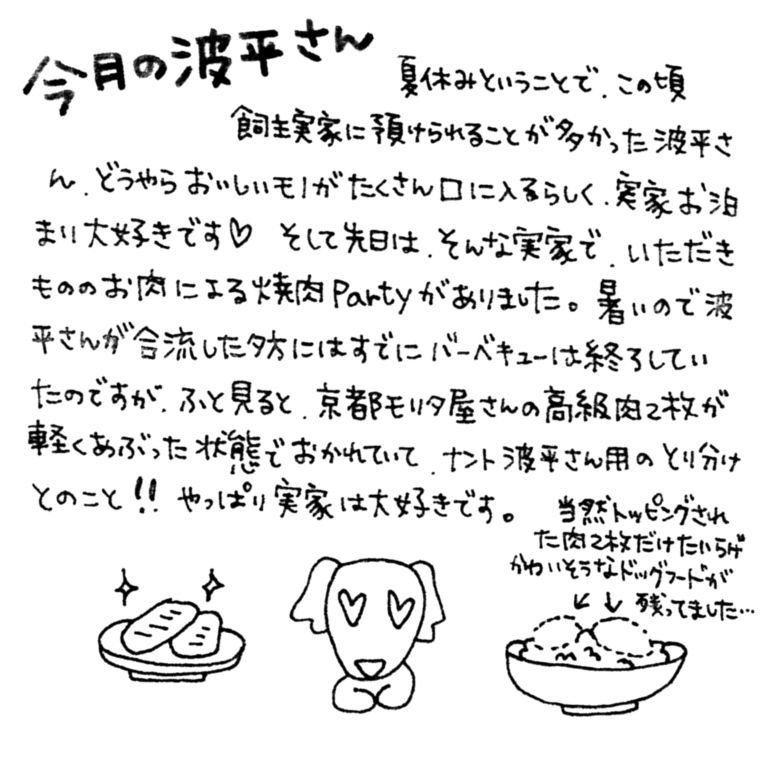 今月の波平さん
夏休みということで、この頃
飼主実家に預けられることが多かった波平さ
ん、どうやらおいしいモノがたくさん口に入るらしく、実家お泊
まり大好きです♡ そして先日は、そんな実家で、いただき
もののお肉による焼肉Partyがありました。暑いので波
平さんが合流した夕方にはすでにバーベキューは終了してい
たのですが、ふと見ると、京都モリタ屋さんの高級肉2枚が
軽くあぶった状態でおかれていて、ナント波平さん用のとり分け
とのこと!! やっぱり実家は大好きです。
当然トッピングされ
た肉2枚だけたいらげ
かわいそうなドッグフードが
残ってました…